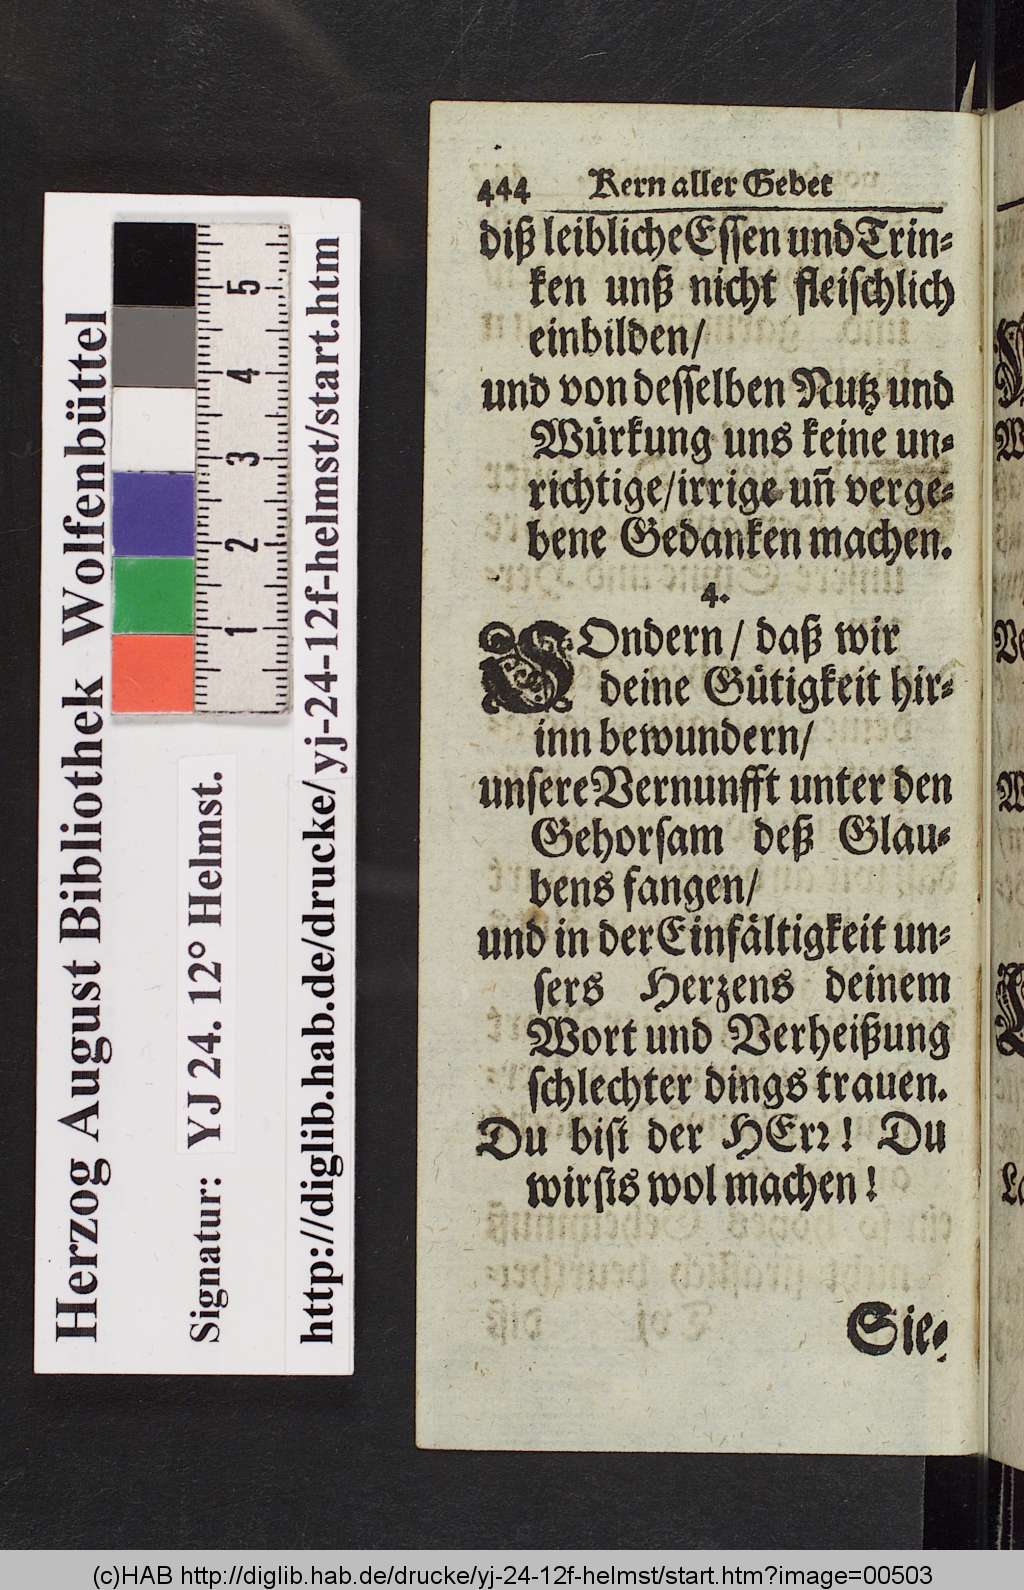 444 Kern aller Gebet
diß leibliche Essen und Trin⸗
ken unß nicht fleischlich
einbilden/
und von desselben Nutz und
Würkung uns keine un⸗
richtige/irrige uñ verge⸗
bene Gedanken machen.
4.
SOndern / daß wir
deine Gütigkeit hir⸗
inn bewundern/
unsere Vernunfft unter den
Gehorsam deß Glau⸗
bens fangen/
und in der Einfältigkeit un⸗
sers Herzens deinem
Wort und Verheißung
schlechter dings trauen.
Du bist der HErr! Du
wirsts wol machen!
Sie⸗
Herzog August Bibliothek Wolfenbüttel
Signatur: YJ 24. 12° Helmst.
http://diglib.hab.de/drucke/yj-24-12f-helmst/start.htm
5
4
3
2
1
(c)HAB http://diglib.hab.de/drucke/yj-24-12f-helmst/start.htm?image=00503